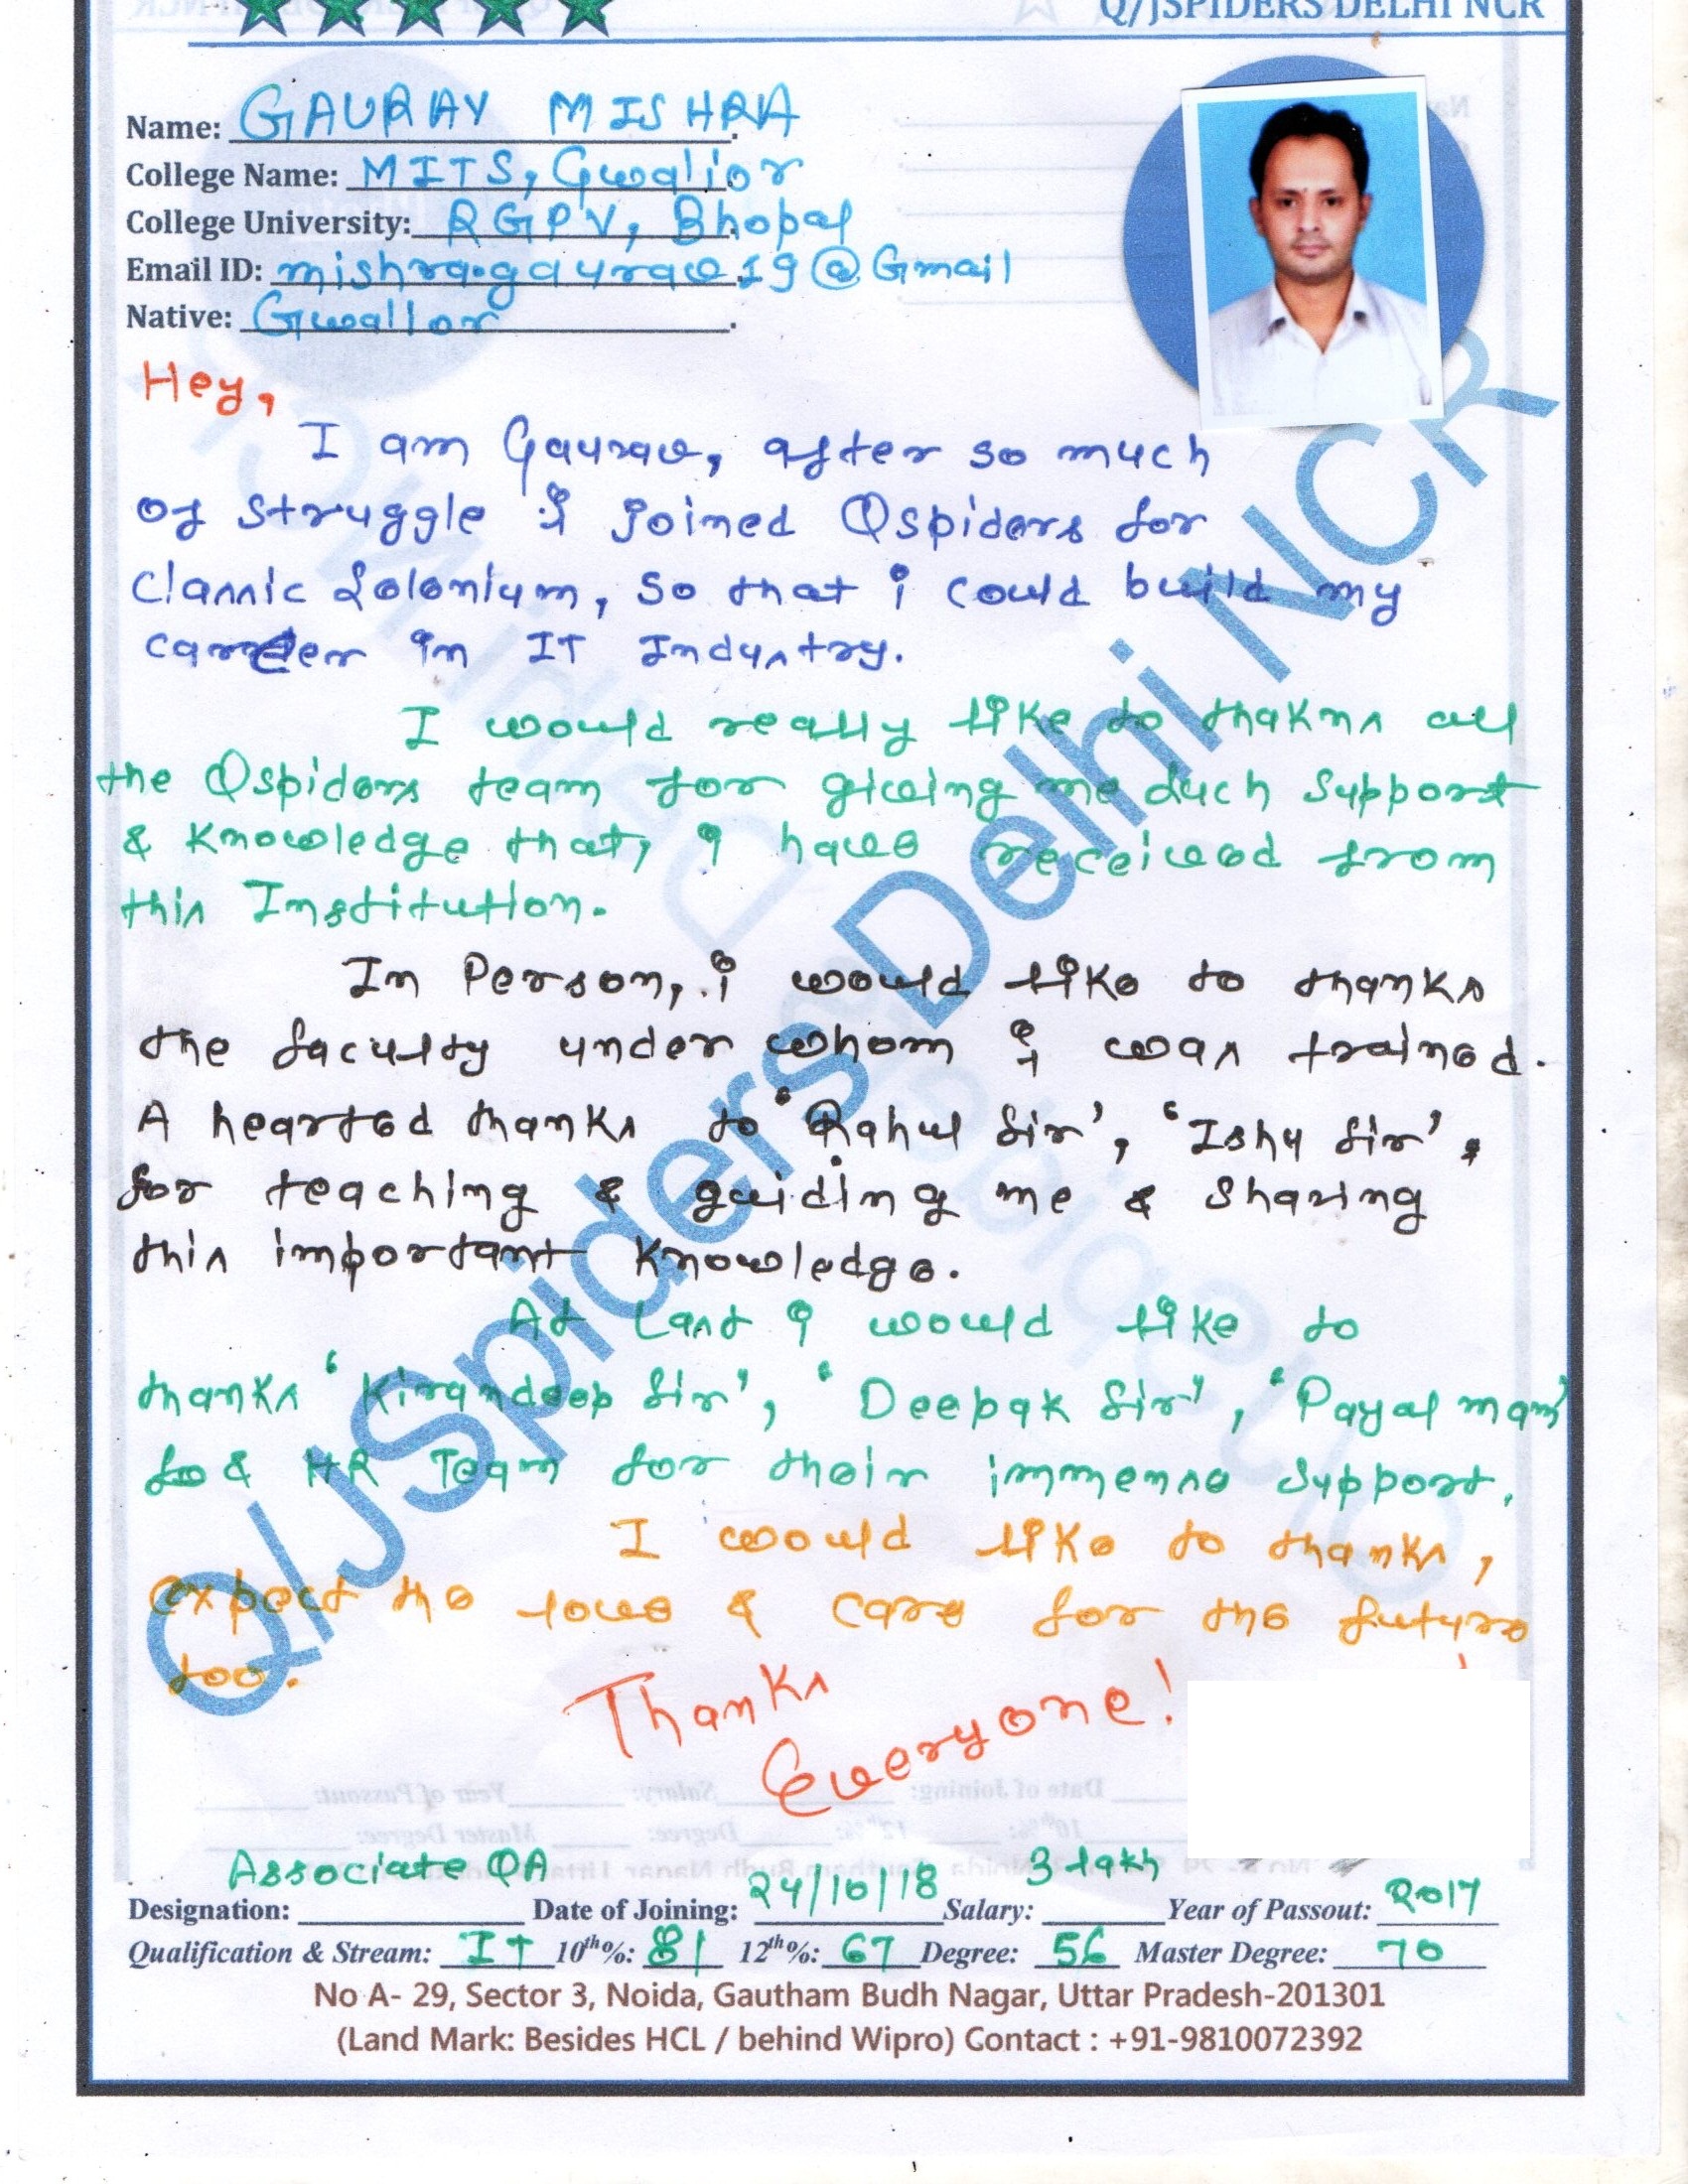 Q/JSPIDERS DELHI NCR
Name: GAURAV MISHRA
College Name: MITS, Gwalior
College University: RGPV, Bhopal
Email ID: mishra.gaurav.19@Gmail
Native: Gwalior
Hey,
I am Gaurav, after so much
of struggle I joined Qspiders for
Classic Selenium, so that i could build my
career in IT Industry.
I would really like to thakns all
the Qspiders team for giving me such support
& knowledge that, I have received from
this Institution.
In Person, i would like to thanks
the faculty under whom I was trained.
A hearted thanks to 'Rahul Sir', 'Ishu Sir',
for teaching & guiding me & sharing
this important knowledge.
At Last I would like to
thanks 'Kirandeep Sir', 'Deepak Sir', 'Payal mam'
& HR Team for their immense support.
I would like to thanks,
expect the love & care for the future
too.
Thanks
Everyone!
Associate QA 24/10/18 3 lakh 2017
Designation: Date of Joining: Salary: Year of Passout:
Qualification & Stream: IT 10th%: 81 12th%: 67 Degree: 56 Master Degree: 70
No A- 29, Sector 3, Noida, Gautham Budh Nagar, Uttar Pradesh-201301
(Land Mark: Besides HCL / behind Wipro) Contact : +91-9810072392
Q/JSpiders Delhi NCR